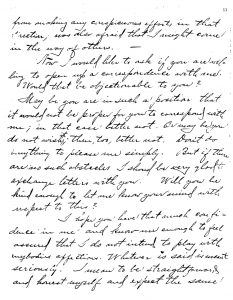 11
from making any conspicuous efforts in that
direction, was also afraid that I might come
in the way of others. —
Now I would like to ask if you are will-
ing to open up a correspondence with me.
Would that be objectionable to you?
May be you are in such a position that
it would not be proper for you to correspond with
me; in that case better not. Or may be you
do not wish, then, too, better not. Don't do
anything to please me simply. But if there
are no such obstacles I should be very glad to
exchange letters with you. Will you be
kind enough to let me know your mind with
respect to this?
I hope you have that much confi-
dence in me and know me enough to feel
assured that I do not intend to play with
anybody's affections. Whatever is said is meant
seriously. I mean to be straightforward,
and honest myself and expect the same